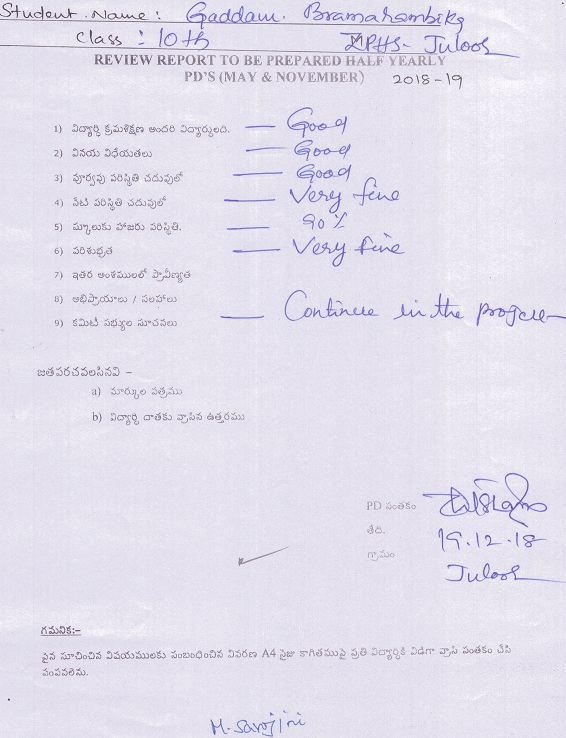 Student Name : Gaddam. Bramarambika
Class : 10th ZPHS- Juloor
REVIEW REPORT TO BE PREPARED HALF YEARLY
PD'S (MAY & NOVEMBER) 2018-19
1) విద్యార్థి క్రమశిక్షణ అందరి విద్యార్థులది. — Good
2) వినయ విధేయతలు — Good
3) పూర్వపు పరిస్థితి చదువులో — Good
4) నేటి పరిస్థితి చదువులో — Very fine
5) స్కూలుకు హాజరు పరిస్థితి. — 90 %
6) పరిశుభ్రత — Very fine
7) ఇతర అంశములలో ప్రావీణ్యత
8) అభిప్రాయాలు / సలహాలు
9) కమిటీ సభ్యుల సూచనలు — Continue in the
జతపరచవలసినవి –
a) మార్కుల పత్రము
b) విద్యార్థి దాతకు వ్రాసిన ఉత్తరము
PD సంతకం
తేది. 19.12.18
గ్రామం Juloor
గమనిక:–
పైన సూచించిన విషయములకు సంబంధించిన వివరణ A4 సైజు కాగితముపై ప్రతి విద్యార్థికి విడిగా వ్రాసి సంతకం చేసి
పంపవలెను.
M. Sarojini